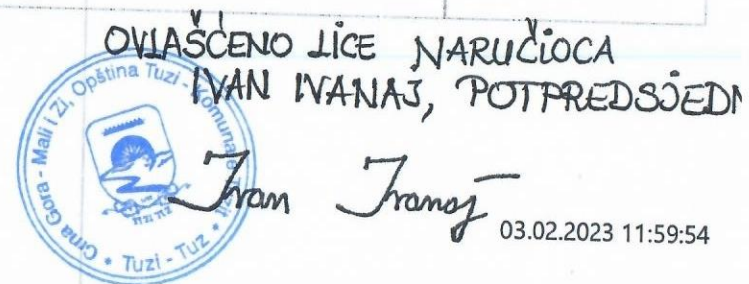 OVLAŠĆENO LICE NARUČIOCA
IVAN IVANAJ, POTPREDSJEDN
Crna Gora - Mali i Zi, Opština Tuzi - Komuna e Tuzit
Tuzi - Tuz
TUZI TUZ
Ivan Ivanaj
03.02.2023 11:59:54